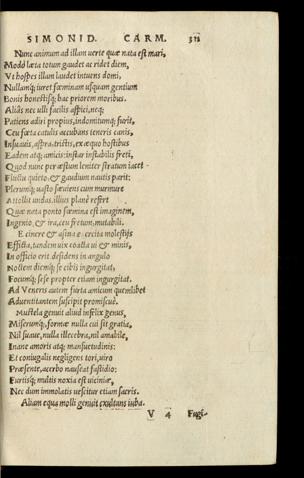 SIMONID. CARM. 311
Nunc animum ad illam uerte quæ nata est mari,
Modò læta totum gaudet ac ridet diem,
Vt hospes illam laudet intuens domi,
Nullamq; iuret fœminam usquam gentium
Bonis honestisq; hac priorem moribus.
Aliàs nec ulli facilis aspici, neq;
Patiens adiri propius, indomitumq; furit,
Ceu fœta catulis accubans teneris canis,
Insuauis, aspra, tristis, ex æquo hostibus
Eadem atq; amicis: instar instabilis freti,
Quod nunc per æstum leniter stratum iacet
Fluctu quieto, & gaudium nautis parit:
Plerumq; uasto sæuiens cum murmure
Attollit undas. illius planè refert
Quæ nata ponto fœmina est imaginem,
Ingenio, & ira, ceu fretum, mutabili.
E cinere & asina exercita molestijs
Effecta, tandem uix coacta ui & minis,
In officio erit desidens in angulo
Noctem diemq; se cibis ingurgitat,
Focumq; sese propter etiam ingurgitat.
Ad Veneris autem furta amicum quemlibet
Aduentitantem suscipit promiscuè.
Mustela genuit aliud infelix genus,
Miserumq;, formæ nulla cui sit gratia,
Nil suaue, nulla illecebra, nil amabile,
Inane amoris atq; mansuetudinis:
Et coniugalis negligens tori, uiro
Præsente, acerbo nauseat fastidio:
Furtisq; multis noxia est uiciniæ,
Nec dum immolatis uescitur etiam sacris.
Aliam equa molli genuit exultans iuba.
V 4 Fugi-